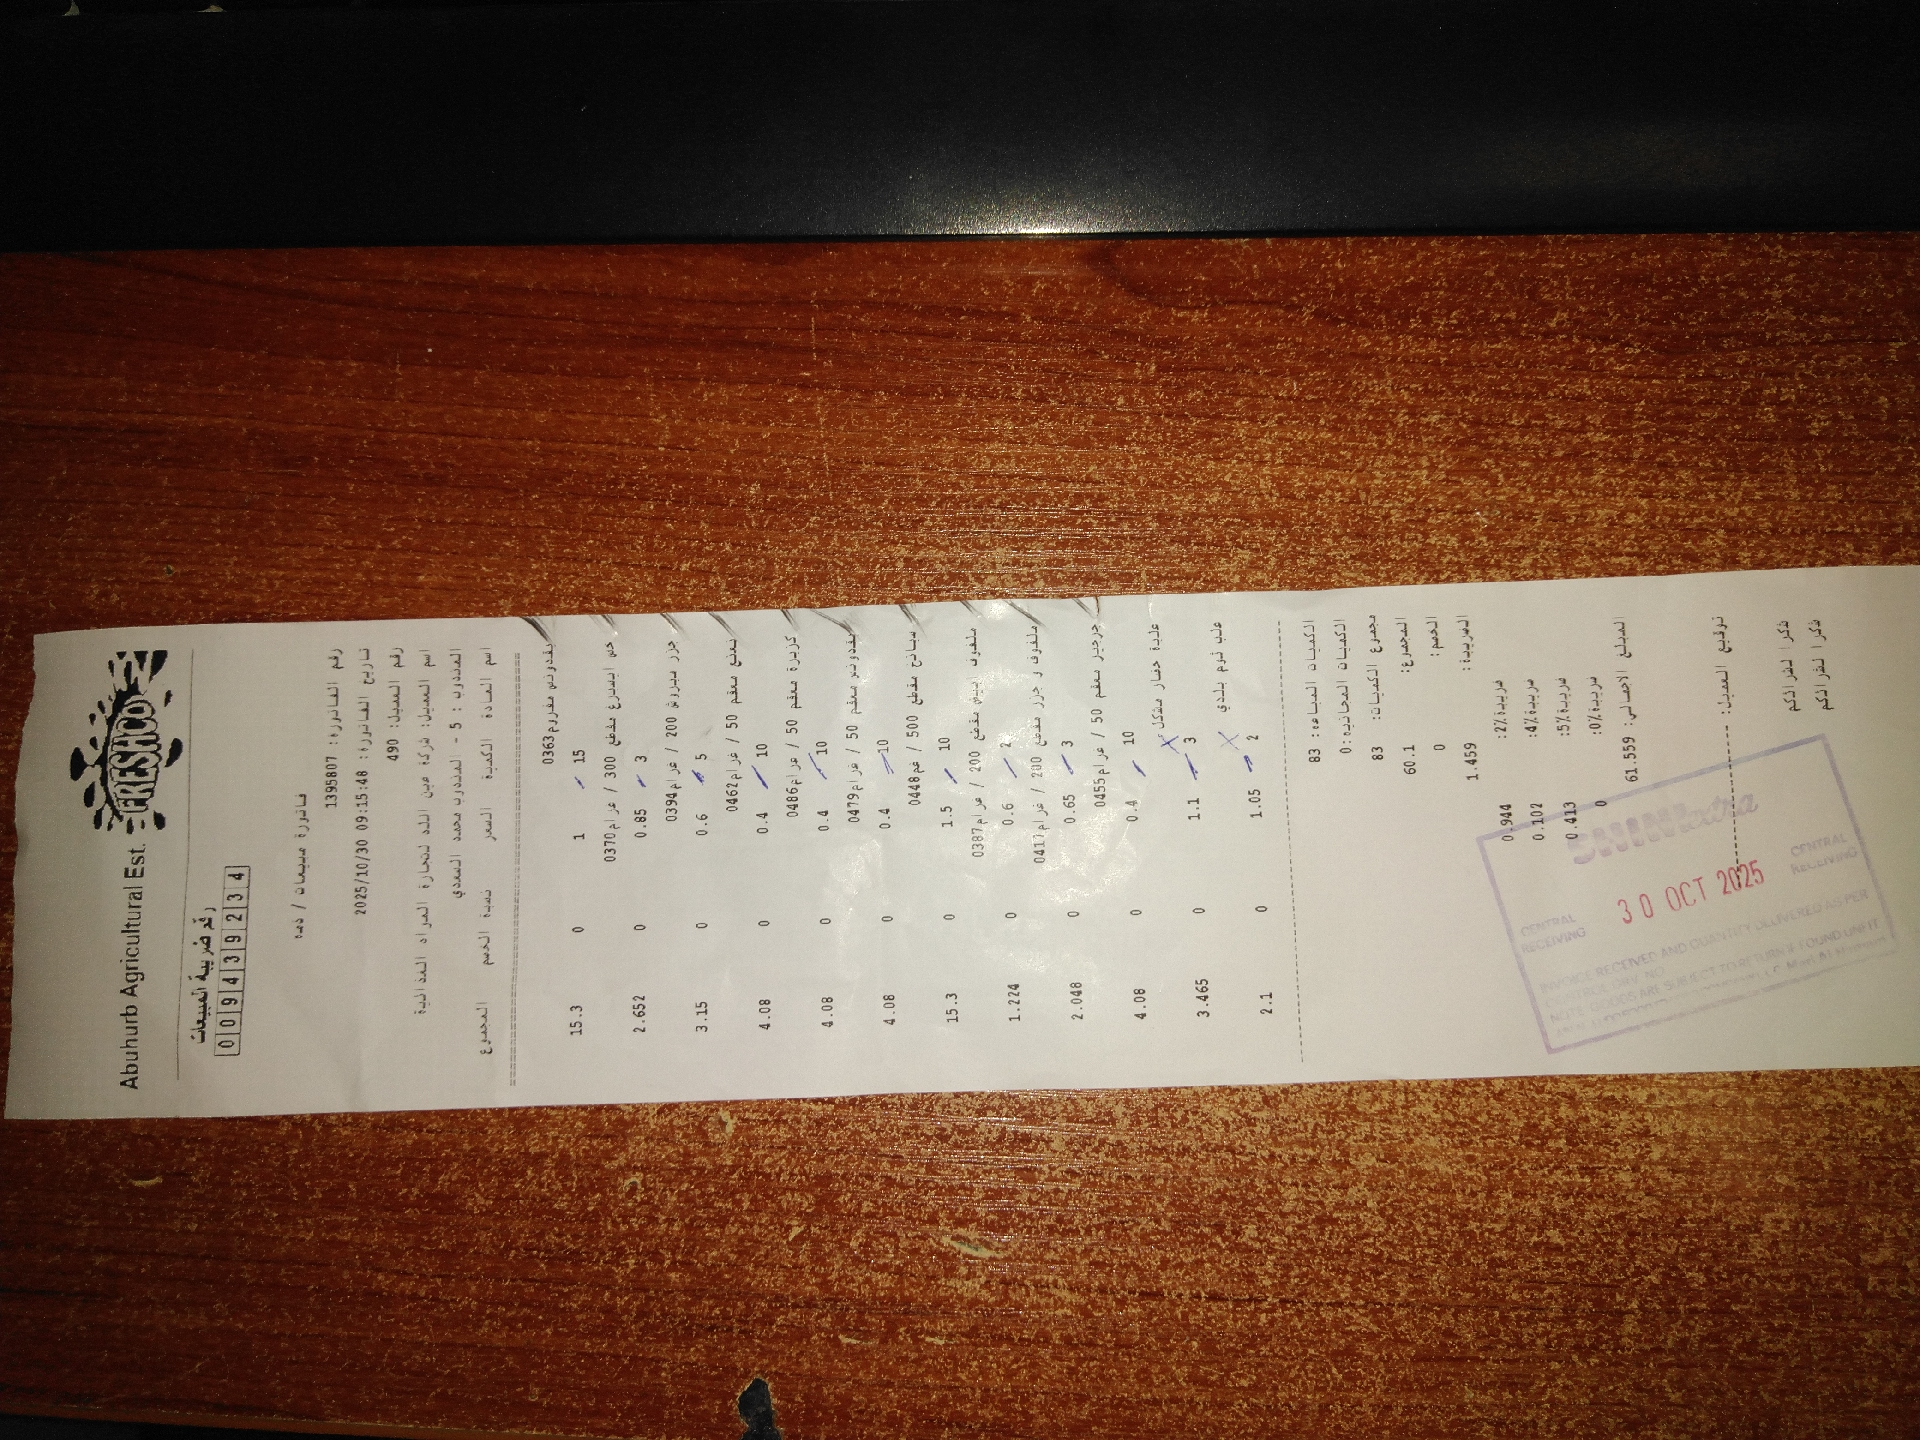 FRESHCO
Abuhurb Agricultural Est.
رقم ضريبة المبيعات
009439234
فاتورة مبيعات / ذمه
رقم الفاتورة: 1395807
تاريخ الفاتورة: 2025/10/30 09:15:48
رقم العميل: 490
اسم العميل: شركة عين الله لتجارة المواد الغذائية
المندوب : 5 - المندوب محمد السعدي
اسم المادة الكمية السعر نسبة الخصم المجموع
بقدونس مفروم0363
15 1 0 15.3
خس ايسبرغ مقطع 300 / غرام0370
3 0.85 0 2.652
جزر مبروش 200 / غرام0394
5 0.6 0 3.15
نعنع معقم 50 / غرام0462
10 0.4 0 4.08
كزبرة معقم 50 / غرام0486
10 0.4 0 4.08
بقدونس معقم 50 / غرام0479
10 0.4 0 4.08
سبانخ مقطع 500 / غم0448
10 1.5 0 15.3
ملفوف ابيض مقطع 200 / غرام0387
2 0.6 0 1.224
ملفوف و جزر مقطع 200 / غرام0417
3 0.65 0 2.048
جرجير معقم 50 / غرام0455
10 0.4 0 4.08
علبة خضار مشكل
3 1.1 0 3.465
علب ثوم بلدي
2 1.05 0 2.1
الكميات المباعه: 83
الكميات المجانيه: 0
مجموع الكميات: 83
المجموع: 60.1
الخصم: 0
الضريبة: 1.459
ضريبة 2%: 0.944
ضريبة 4%: 0.102
ضريبة 5%: 0.413
ضريبة 0%: 0
المبلغ الاجمالي: 61.559
توقيع العميل:
شكرا لشرائكم
شكرا لشرائكم
CENTRAL RECEIVING
30 OCT 2025
CENTRAL RECEIVING
RECEIVED AND QUANTITY DELIVERED AS PER
ARE SUBJECT TO RETURN IF FOUND UNFIT